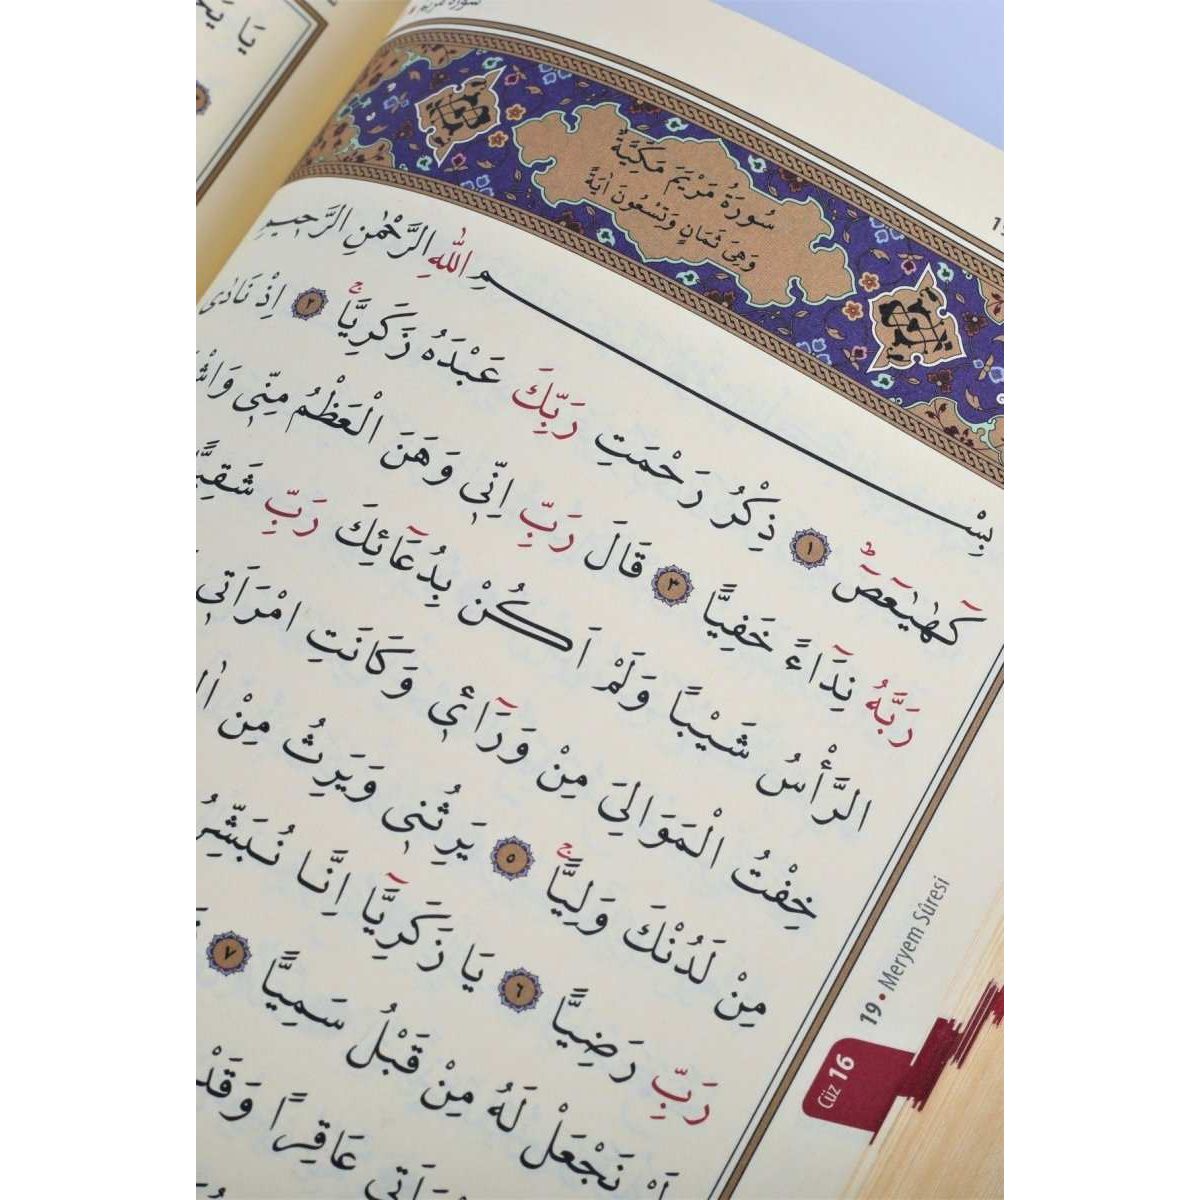 سُورَةُ مَرْيَمَ مَكِّيَّةٌ
وَهِىَ ثَمَانٍ وَتِسْعُونَ اٰيَةً
بِسْمِ اللّٰهِ الرَّحْمٰنِ الرَّحِيمِ
كٓهٰيٰعٓصٓ ﴿١﴾ ذِكْرُ رَحْمَتِ رَبِّكَ عَبْدَهُ زَكَرِيَّا ﴿٢﴾ اِذْ نَادٰى
رَبَّهُ نِدَٓاءً خَفِيًّا ﴿٣﴾ قَالَ رَبِّ اِنّ۪ى وَهَنَ الْعَظْمُ مِنّ۪ى
الرَّأْسُ شَيْبًا وَلَمْ اَكُنْ بِدُعَٓائِكَ رَبِّ شَقِيًّا
خِفْتُ الْمَوَالِىَ مِنْ وَرَٓاء۪ى وَكَانَتِ امْرَاَت۪ى
مِنْ لَدُنْكَ وَلِيًّا ﴿٥﴾ يَرِثُن۪ى وَيَرِثُ مِنْ
رَبِّ رَضِيًّا ﴿٦﴾ يَا زَكَرِيَّٓا اِنَّا نُبَشِّرُ
نَجْعَلْ لَهُ مِنْ قَبْلُ سَمِيًّا ﴿٧﴾
عَاقِرًا وَقَدْ
19 • Meryem Sûresi
Cüz 16